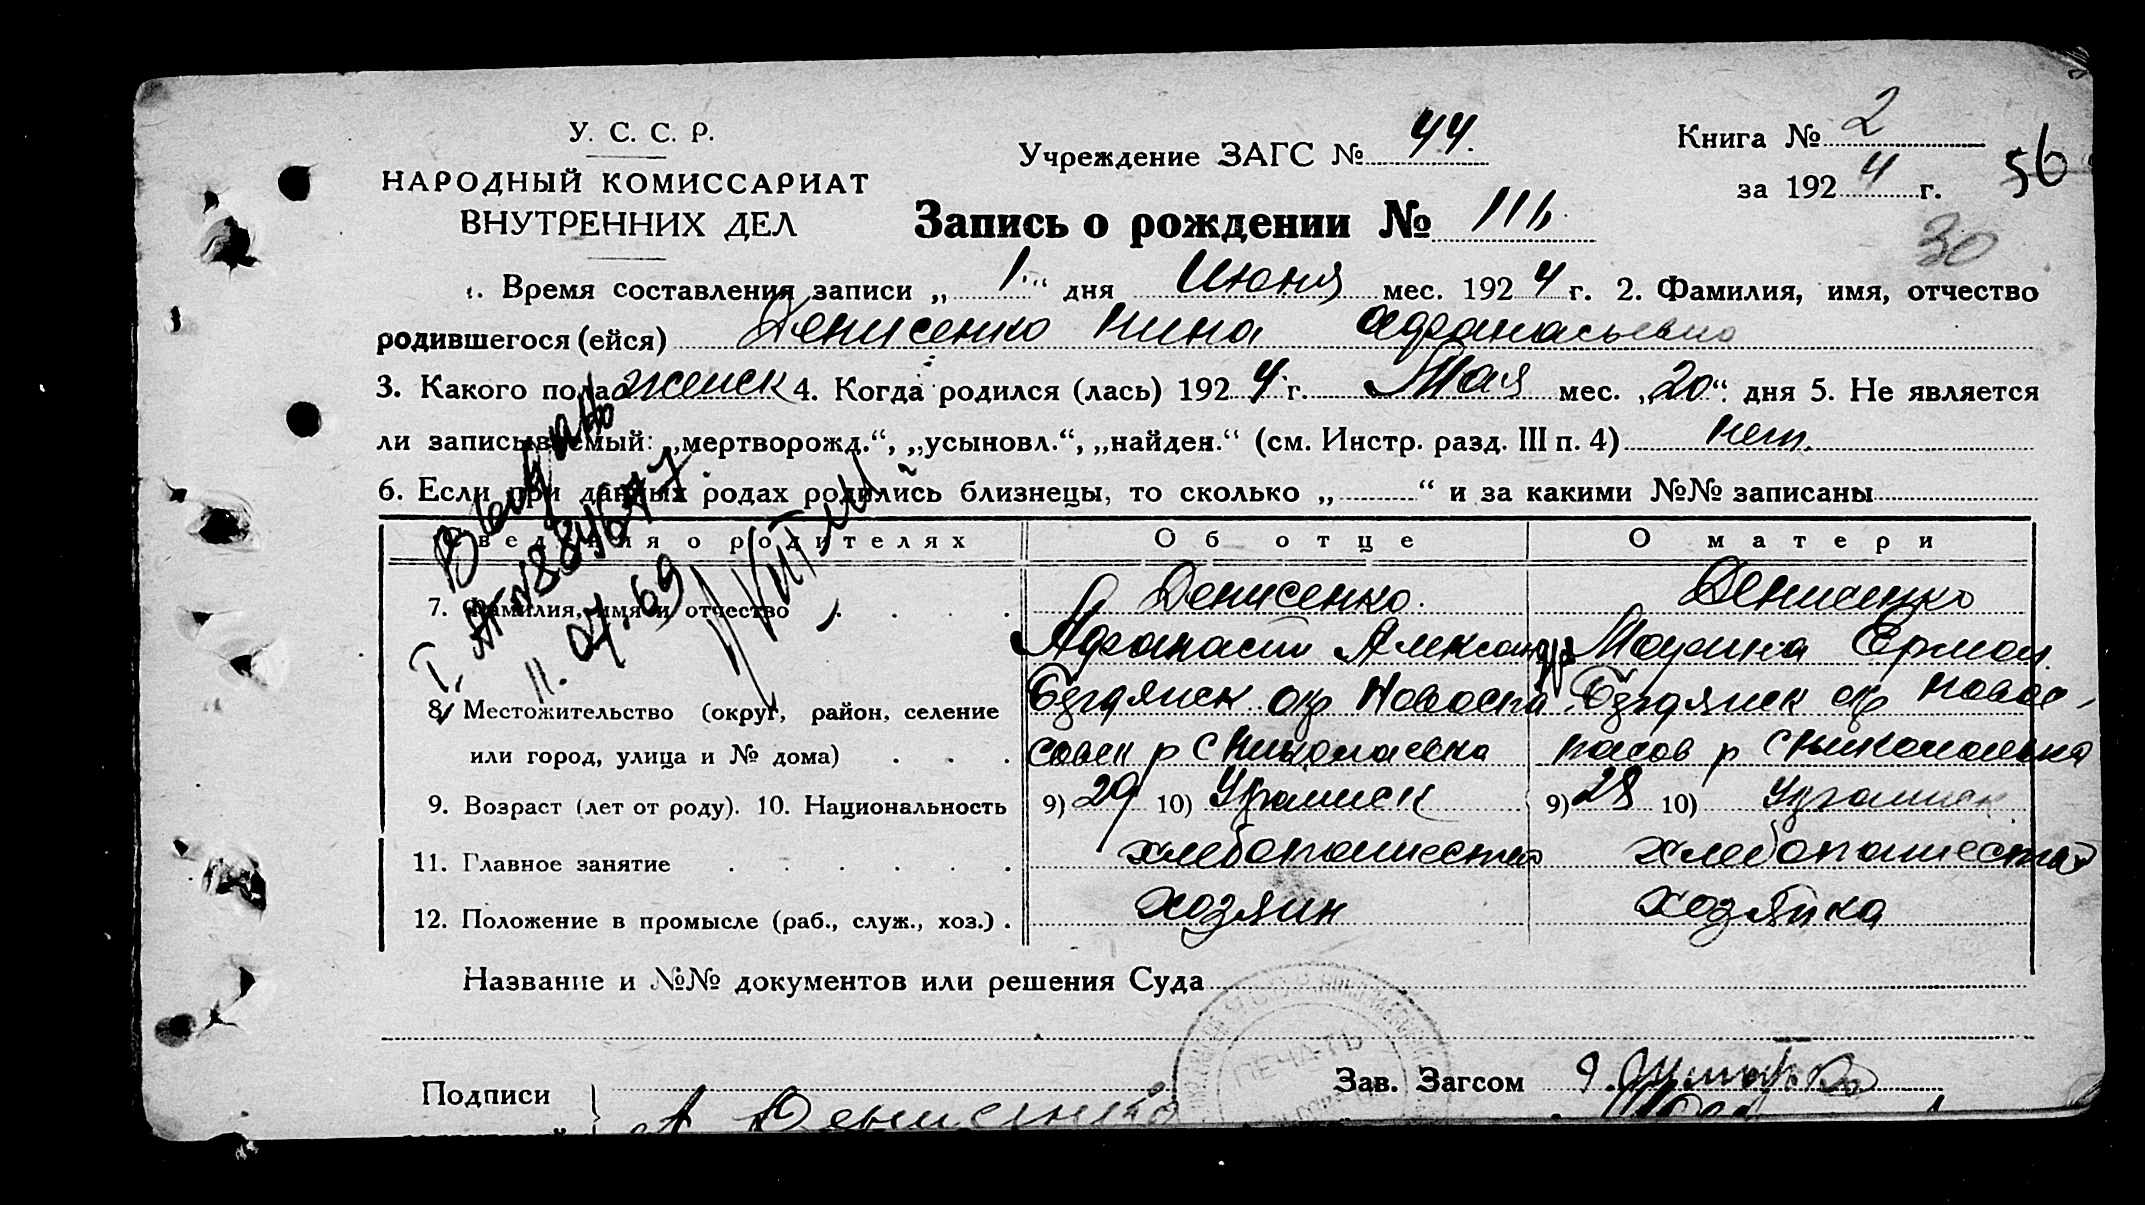 У. С. С. Р.
НАРОДНЫЙ КОМИССАРИАТ
ВНУТРЕННИХ ДЕЛ
Учреждение ЗАГС № 44.
Книга № 2
за 1924 г.
56
30
Запись о рождении № 116
1. Время составления записи „1“ дня Июня мес. 1924 г. 2. Фамилия, имя, отчество
родившегося (ейся) Денисенко Нина Афанасьевна
3. Какого пола женск 4. Когда родился (лась) 1924 г. Мая мес. „20“ дня 5. Не является
ли записываемый: „мертворожд.“, „усыновл.“, „найден.“ (см. Инстр. разд. III п. 4) нет.
6. Если при данных родах родились близнецы, то сколько „ “ и за какими №№ записаны
Сведения о родителях Об отце О матери
7. Фамилия, имя и отчество Денисенко. Денисенко
Афанасий Александр Марина Ермол.
8. Местожительство (округ, район, селение Бердянск окр Новоспа Бердянск окр Новос-
или город, улица и № дома) совск р с Николаевка пасов р с Николаевка
9. Возраст (лет от роду). 10. Национальность 9) 29 10) Украинск 9) 28 10) Украинск
11. Главное занятие хлебопашество хлебопашество
12. Положение в промысле (раб., служ., хоз.) хозяин хозяйка
Название и №№ документов или решения Суда
ПЕЧАТЬ
Подписи А Денисенко Зав. Загсом
Выдано
11. 07. 69